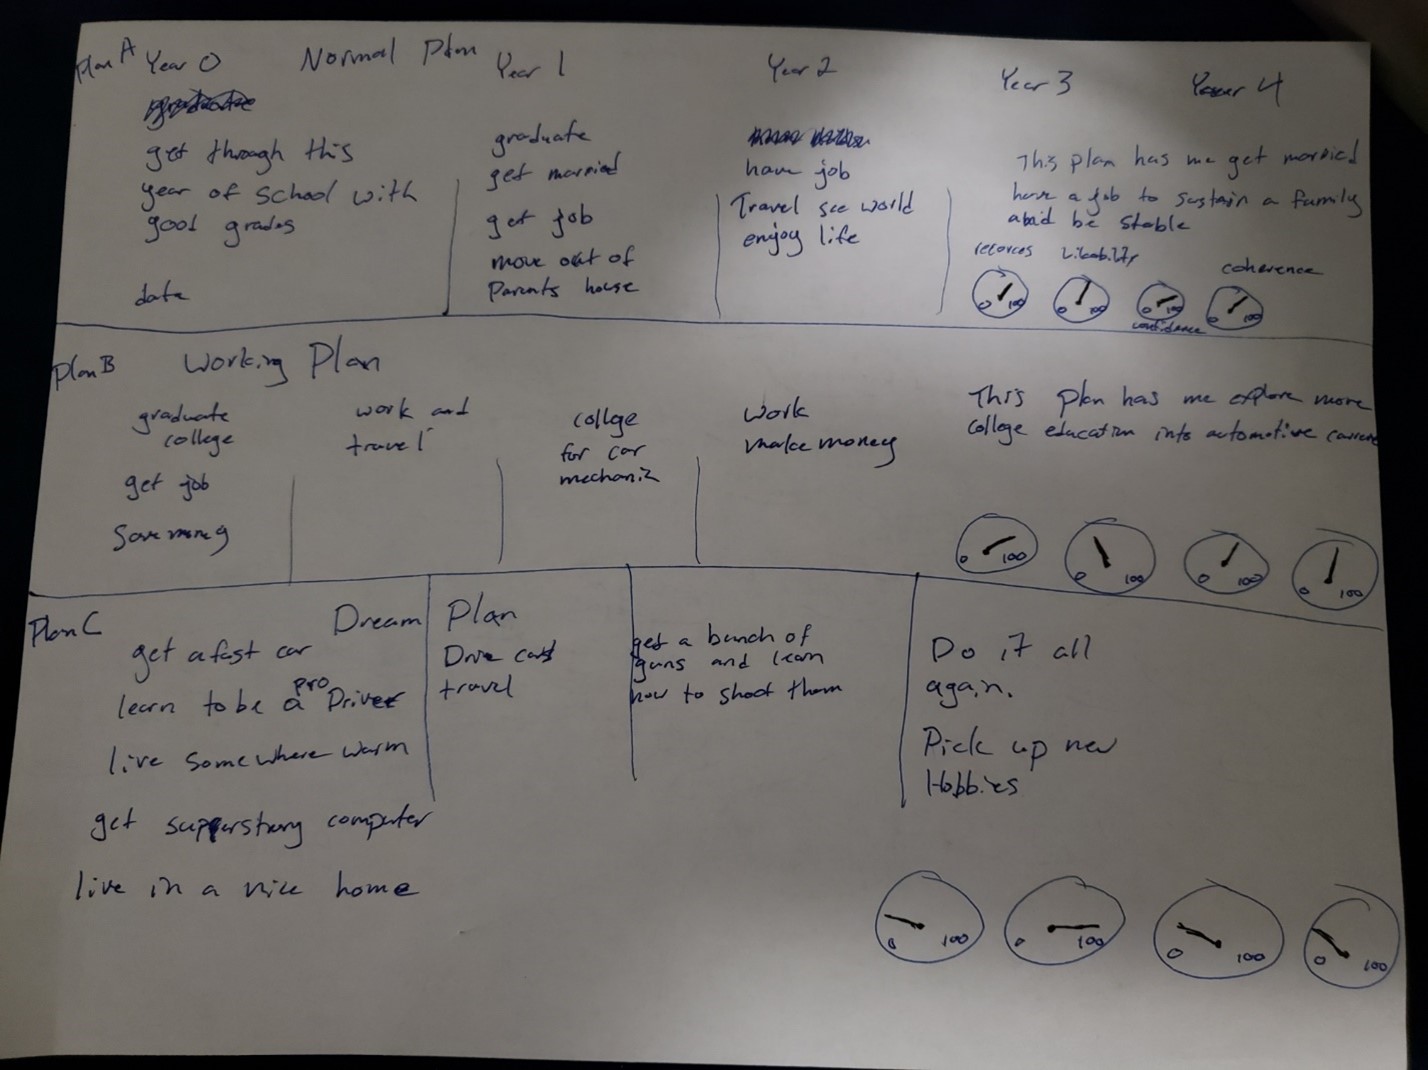 Plan A Year 0 Normal Plan Year 1 Year 2 Year 3 Year 4
get through this
year of school with
good grades
date
graduate
get married
get job
move out of
Parents house
have job
Travel see world
enjoy life
This plan has me get married
have a job to sustain a family
be stable
recorces Likability coherence
0 100 0 100 0 100 0 100
confidance
Plan B Working Plan
graduate
college
get job
Save money
work and
travel
collge
for car
mechanic
work
make money
This plan has me explore more
college education into automotive
0 100 0 100 0 100 0 100
Plan C Dream Plan
get a fast car
learn to be a pro Driver
live somewhere warm
get superstrong computer
live in a nice home
Drive cars
travel
get a bunch of
guns and learn
how to shoot them
Do it all
again.
Pick up new
Hobbies
0 100 0 100 0 100 0 100